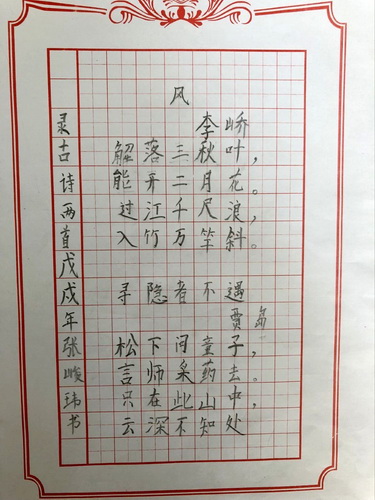 风
李峤
解落三秋叶，
能开二月花。
过江千尺浪，
入竹万竿斜。
寻隐者不遇
贾岛
松下问童子，
言师采药去。
只在此山中，
云深不知处
录古诗两首戊戌年张峻玮书